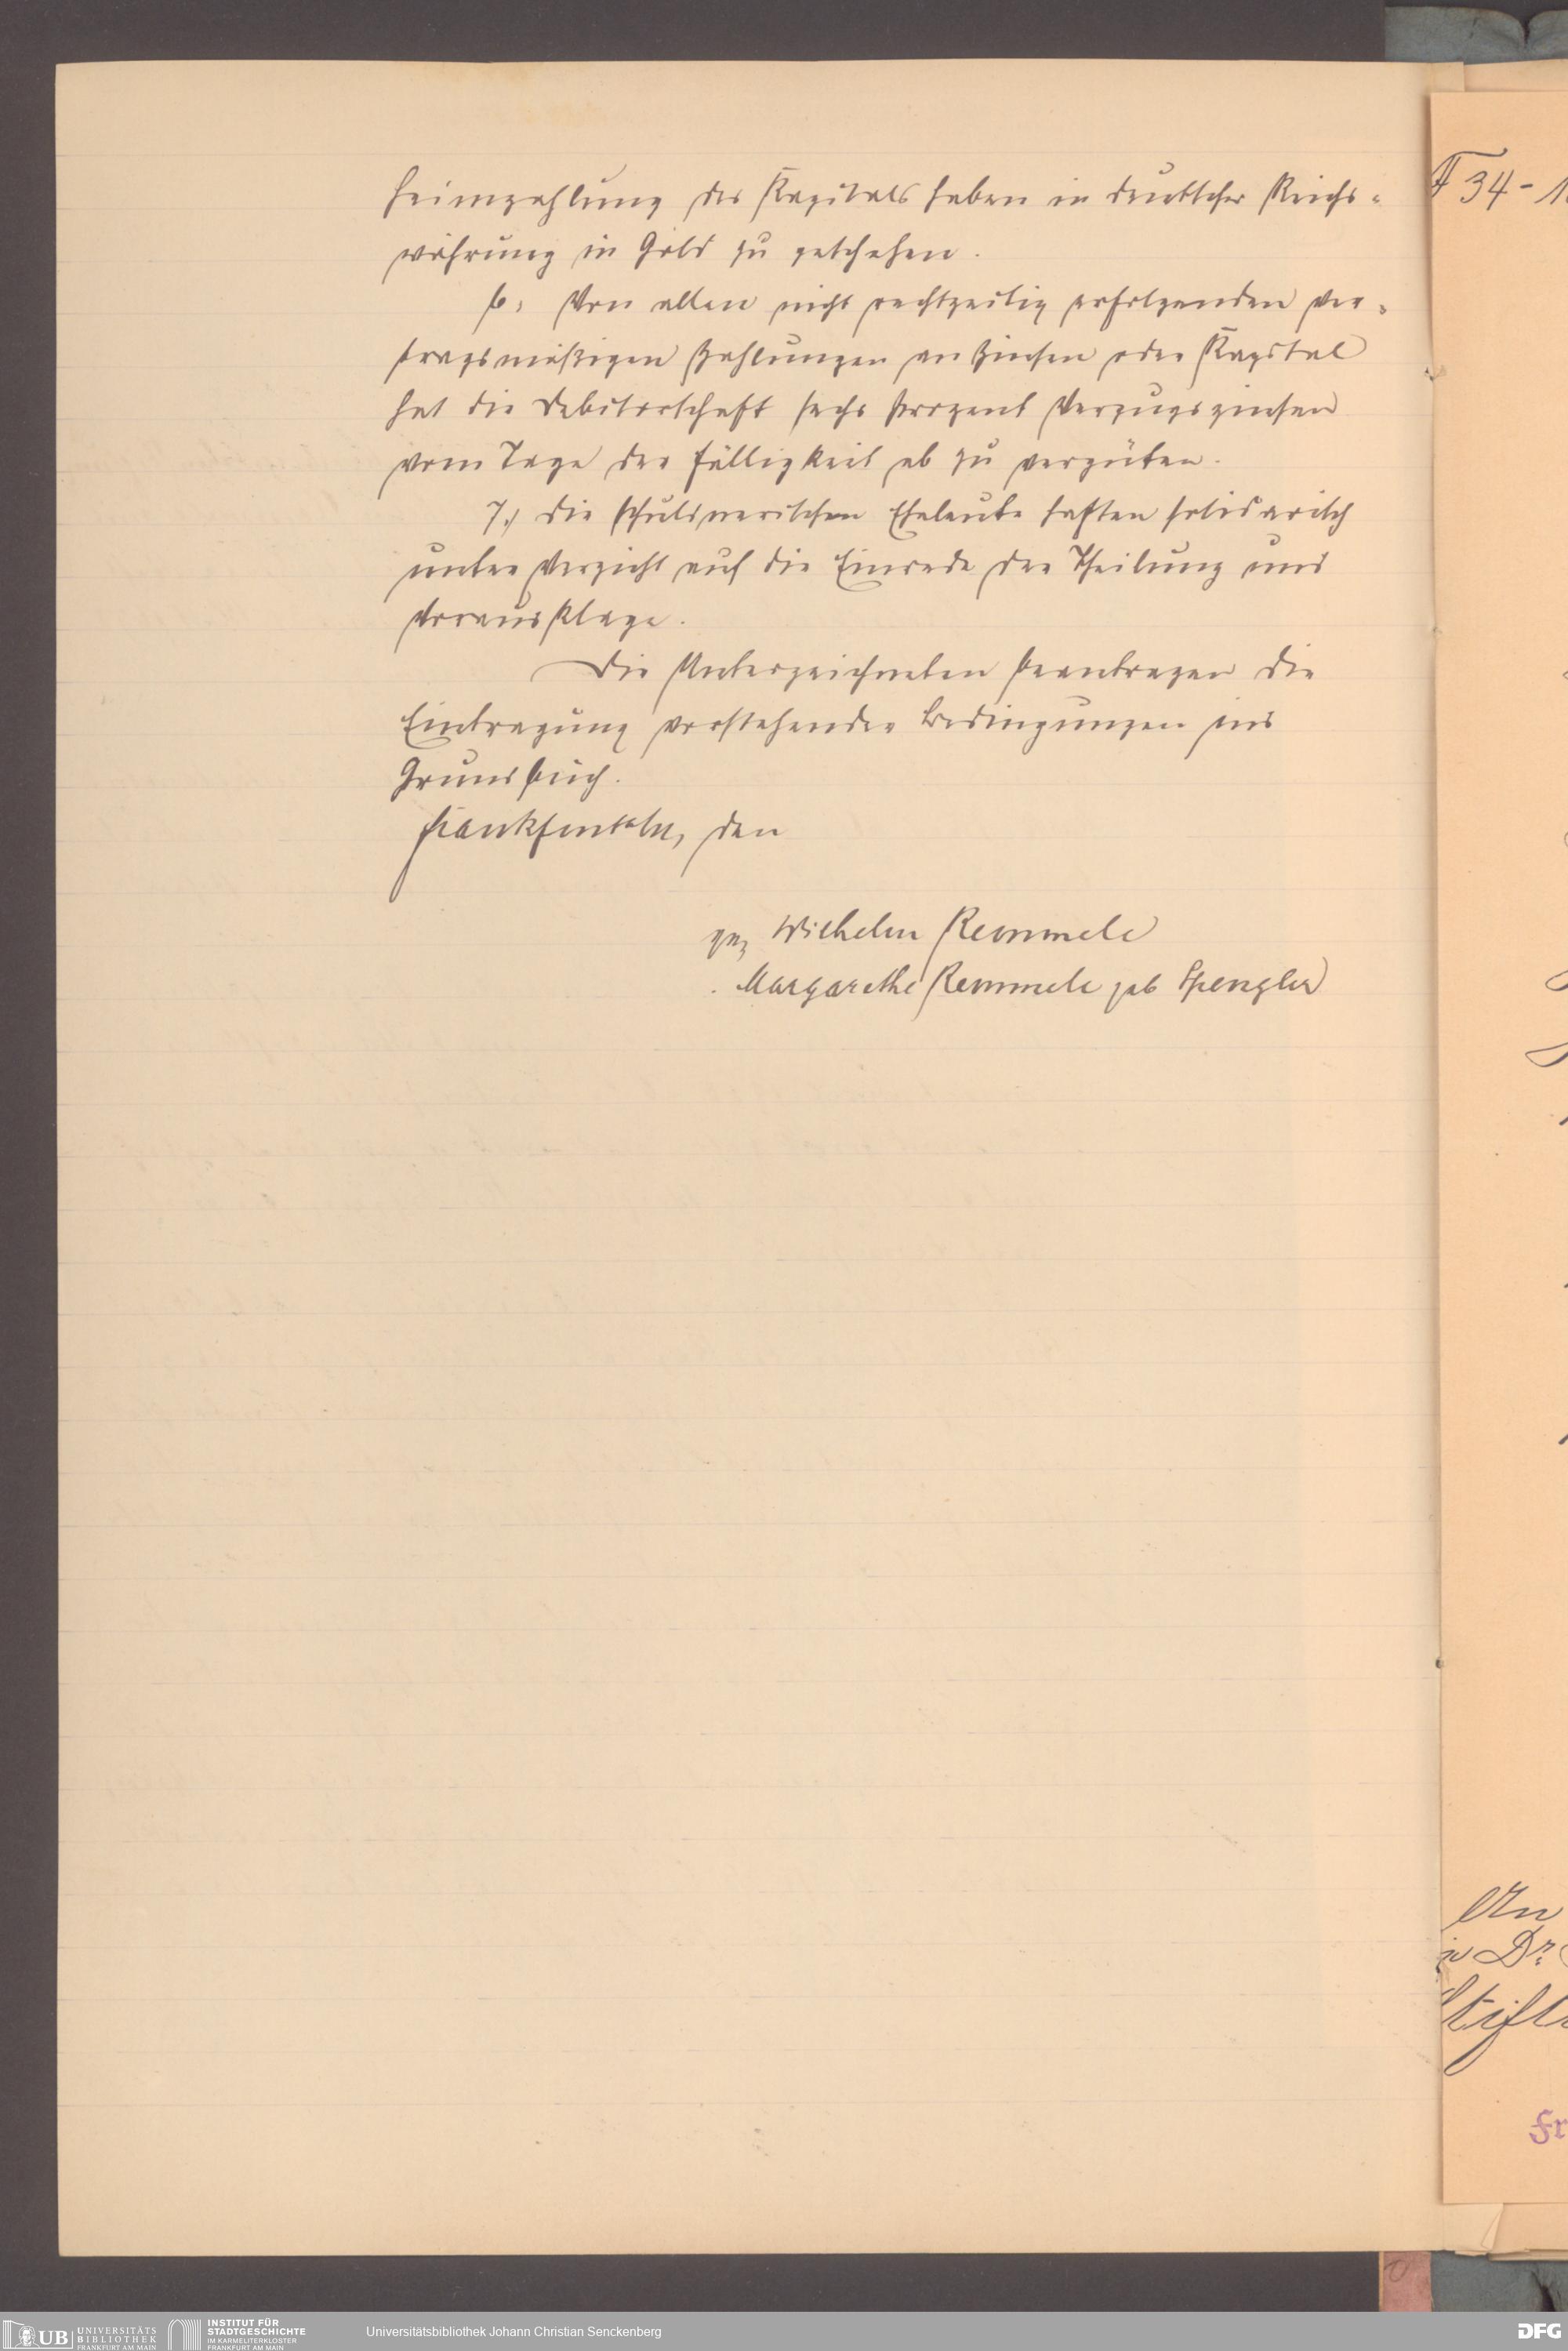 heimzahlung des Kapitals haben in deutscher Reichs-
währung in Gold zu geschehen.
6, Von allen nicht rechtzeitig erfolgenden ver-
tragsmäßigen Zahlungen an Zinsen oder Kapital
hat die Debitorschaft sechs Prozent Verzugszinsen
vom Tage der Fälligkeit ab zu vergüten.
7,) Die schuldnerischen Eheleute haften solidarisch
unter Verzicht auf die Einrede der Theilung und
Vorausklage.
Die Unterzeichneten beantragen die
Eintragung vorstehender Bedingungen ins
Grundbuch.
Frankfurt a/M, den
gez Wilhelm Remmele
. Margarethe Remmele geb Spengler
F 34-1
An
Dr.
Stift
Fr
UB UNIVERSITÄTS
BIBLIOTHEK
FRANKFURT AM MAIN
INSTITUT FÜR
STADTGESCHICHTE
IM KARMELITERKLOSTER
FRANKFURT AM MAIN
Universitätsbibliothek Johann Christian Senckenberg
DFG